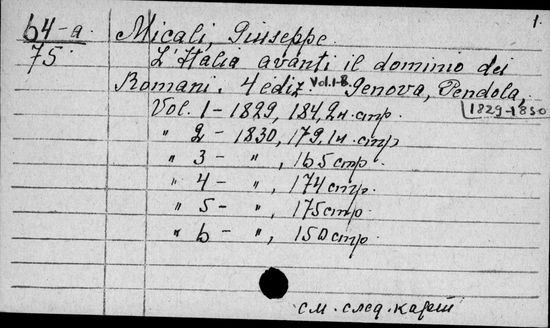 1.
64-а. Micali, Giuseppe
75 L'Italia avanti il dominio dei
Romani. 4 ediz. Vol.1-8. Genova, Pendola,
1829-1830
Vol. 1 - 1829, 184, 2н. стр.
" 2 - 1830, 179, 1н. стр.
" 3 - ", 165 стр.
" 4 - ", 174 стр.
" 5 - ", 175 стр.
" 6 - ", 150 стр.
см. след. карт